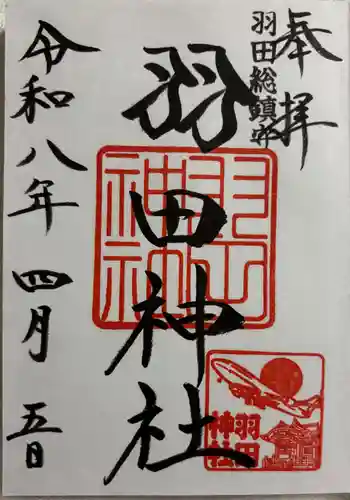 奉拝
羽田総鎮守
羽田神社
羽田神社
羽田神社
令和八年 四月 五日